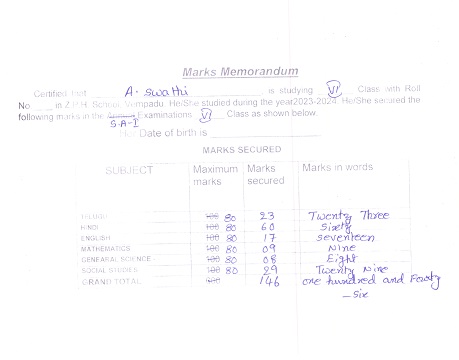 Marks Memorandum
Certified that A. Swathi is studying VI Class with Roll
No ____ in Z.P.H. School, Vempadu. He/She studied during the year2023-2024. He/She secured the
following marks in the Annual S.A-I Examinations VI Class as shown below.
Her Date of birth is
MARKS SECURED
SUBJECT Maximum marks Marks secured Marks in words
TELUGU 100 80 23 Twenty Three
HINDI 100 80 60 Sixty
ENGLISH 100 80 17 Seventeen
MATHEMATICS 100 80 09 Nine
GENEARAL SCIENCE 100 80 08 Eight
SOCIAL STUDIES 100 80 29 Twenty Nine
GRAND TOTAL 146 one hundred and Fourty
-Six